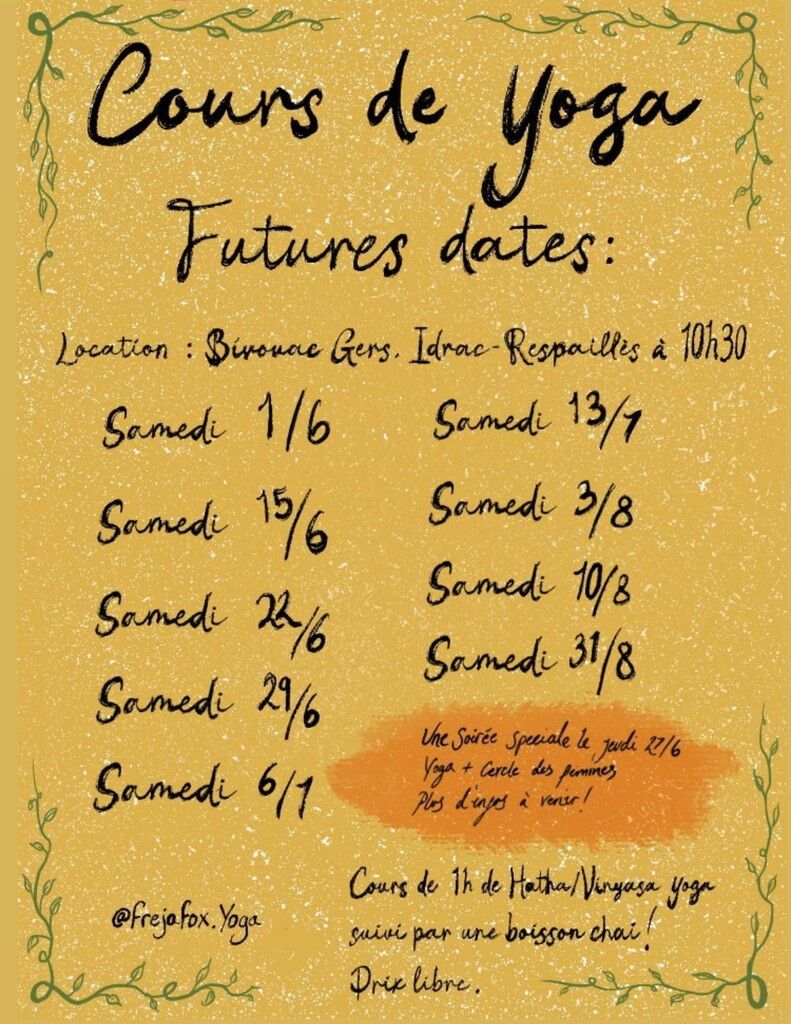 Cours de Yoga
Futures dates:
Location : Bivouac Gers. Idrac-Respaillès à 10h30
Samedi 1/6
Samedi 15/6
Samedi 22/6
Samedi 29/6
Samedi 6/7
Samedi 13/7
Samedi 3/8
Samedi 10/8
Samedi 31/8
Une Soirée speciale le jeudi 27/6
Yoga + Cercle des femmes
Plus d'infos à venir!
@frejafox.Yoga
Cours de 1h de Hatha/Vinyasa yoga
suivi par une boisson chai!
Prix libre.